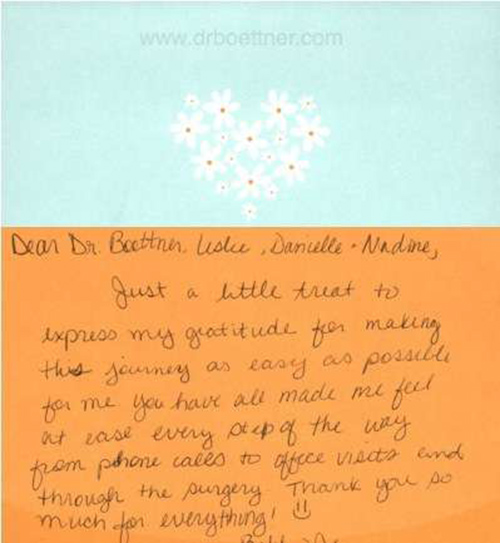 www.drboettner.com
Dear Dr. Boettner, Leslie, Danielle + Nadine,
Just a little treat to
express my gratitude for making
this journey as easy as possible
for me you have all made me feel
at ease every step of the way
from phone calls to office visits and
through the surgery. Thank you so
much for everything!